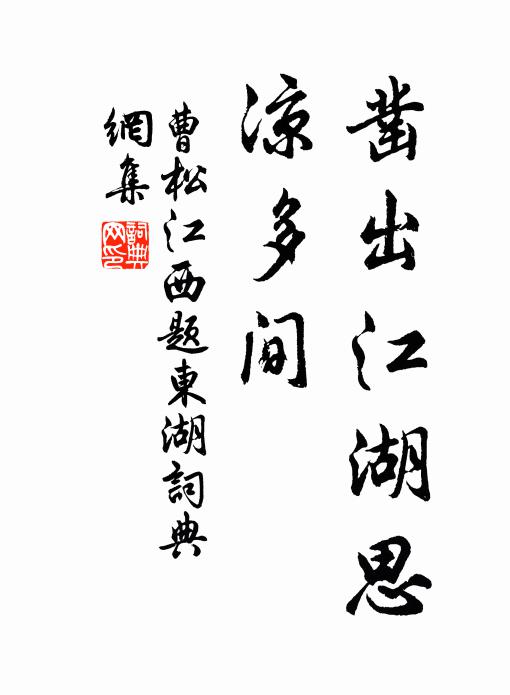 凿出江湖思
凉多间
曹松江西题東湖詞典
網集
詞典
网印